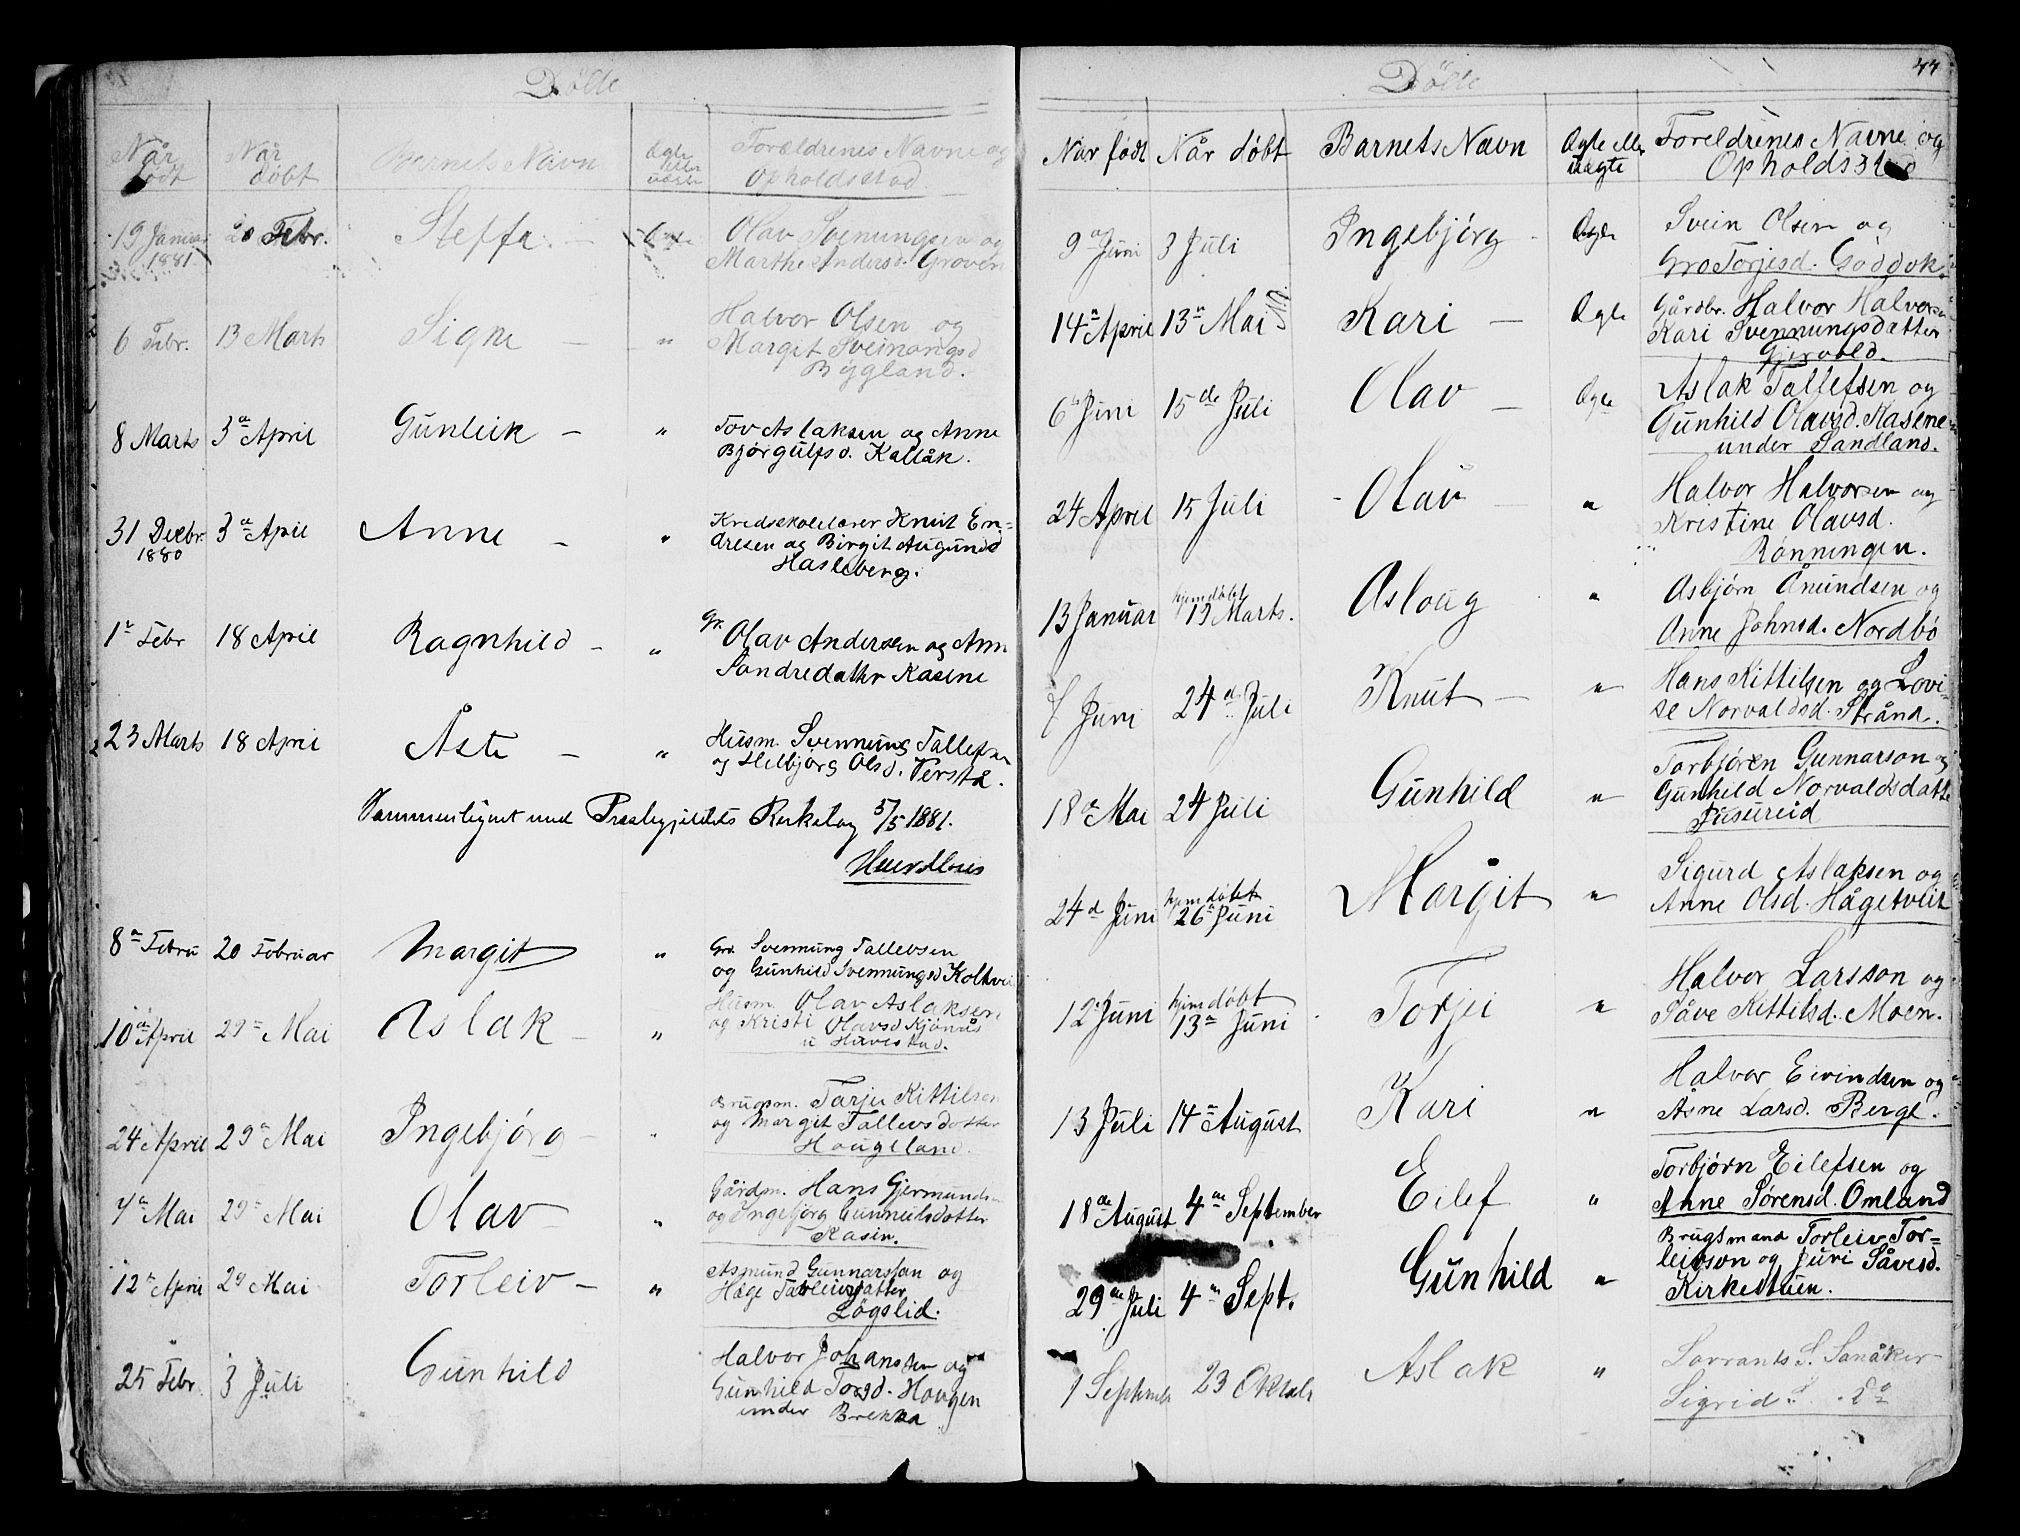 Døbte
Når født
Når døbt
Barnets Navn
Ægte eller uægte
Forældrenes Navne og Opholdssted
19 Januar 1881
20 Febr.
Steffa. -
Olav Svenungsen og
Marthe Andersd. Groven
6 Febr.
13 Marts
Signe -
"
Halvor Olsen og
Margit Sveinongsd
Bygland.
8 Marts
3a April
Gunleik -
"
Tov Aslaksen og Anne
Bjørgulfsd. Kallåk.
31 Decbr. 1880
3a April
Anne -
"
Kredsskolelærer Knut En=
dresen og Birgit Augunsd
Hasleberg.
1a Febr
18 April
Ragnhild -
"
Gr. Olav Andersen og Ann
Sondredatter Kasene
23 Marts
18 April
Åste -
"
Husm. Svennung Tallefsen
og Helbjørg Olsd. Verstå.
Sammenlignet med Præstegjeldets Kirkebog 5/5 1881.
8a Febru
20 Februar
Margit
"
Gr. Svennung Tallevsen
og Gunhild Svennungsd Koltvei
10a April
29a Mai
Aslak -
"
Husm. Olav Aslaksen
og Kristi Olavsd Kjønås
u Havestad.
24 April
29a Mai
Ingebjørg -
"
Brugsm. Tarjei Kittilsen
og Margit Tallevsdotter
Hougeland.
4a Mai
29a Mai
Olav
"
Gårdm. Hans Gjermunds-
og Ingebjørg Gunneilsdotter
Kasin.
12a April
29 Mai
Torleiv -
"
Asmund Gunnarsson og
Hæge Tarleivsdatter
Løgslid.
25 Febr.
3 Juli
Gunhild
Halvor Johansen og
Gunhild Torsd. Hougen
under Brekka
Døbte
44
Når født
Når døbt
Barnets Navn
Ægte eller uægte
Foreldrenes Navne og
Opholdssted
9 Juni
3 Juli
Ingebjørg -
Ægte
Svein Olsen og
Gro Torjesd. Goddok.
14a April
13a Mai
Kari -
Ægte
Gårdbr. Halvor Halvorsen
Kari Svennungsdatter
Gjervold.
6 Juni
15de Juli
Olav -
Ægte
Aslak Tallefsen og
Gunhild Olavsd. Kasene
under Sandland.
24 April
15 Juli
Olav
"
Halvor Halvorsen og
Kristine Olavsd.
Rønningen.
13 Januar
hjemdøbt
13 Marts.
Asloug
"
Asbjørn Ånundsen og
Anne Johnsd. Nordbø
Juni
24d Juli
Knut -
"
Hans Kittilsen og Lovi-
se Norvaldsd. Strånd.
18a Mai
24 Juli
Gunhild
"
Torbjøren Gunnarson og
Gunhild Norvaldsdatte
24d Juni
hjemdøbt
26a Juni
Margit
"
Sigurd Aslaksen og
Anne Olsd. Hågetveit
12 Juni
hjemdøbt
13a Juni
Torjei
"
Halvor Larsson og
Såve Kittilsd. Moen.
13 Juli
14a August
Kari
"
Halvor Eivindsen og
Åsne Larsd. Berge.
18de August
4de September
Eilef
"
Torbjørn Eilefsen og
Anne Sørensd. Omland
29de Juli
4de Sept.
Gunhild
"
Brugsmand Torleiv Tor=
leivson og Juri Såvesd.
Kirkestuen.
1 Septembr
23 Oktobr
Aslak
"
Sorrants S. Sanåker
Sigrid